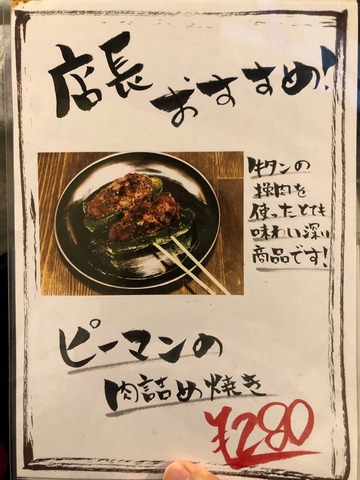 店長
おすすめ!
牛タンの
挽肉を
使ったとても
味わい深い
商品です!
ピーマンの
肉詰め焼き
¥280